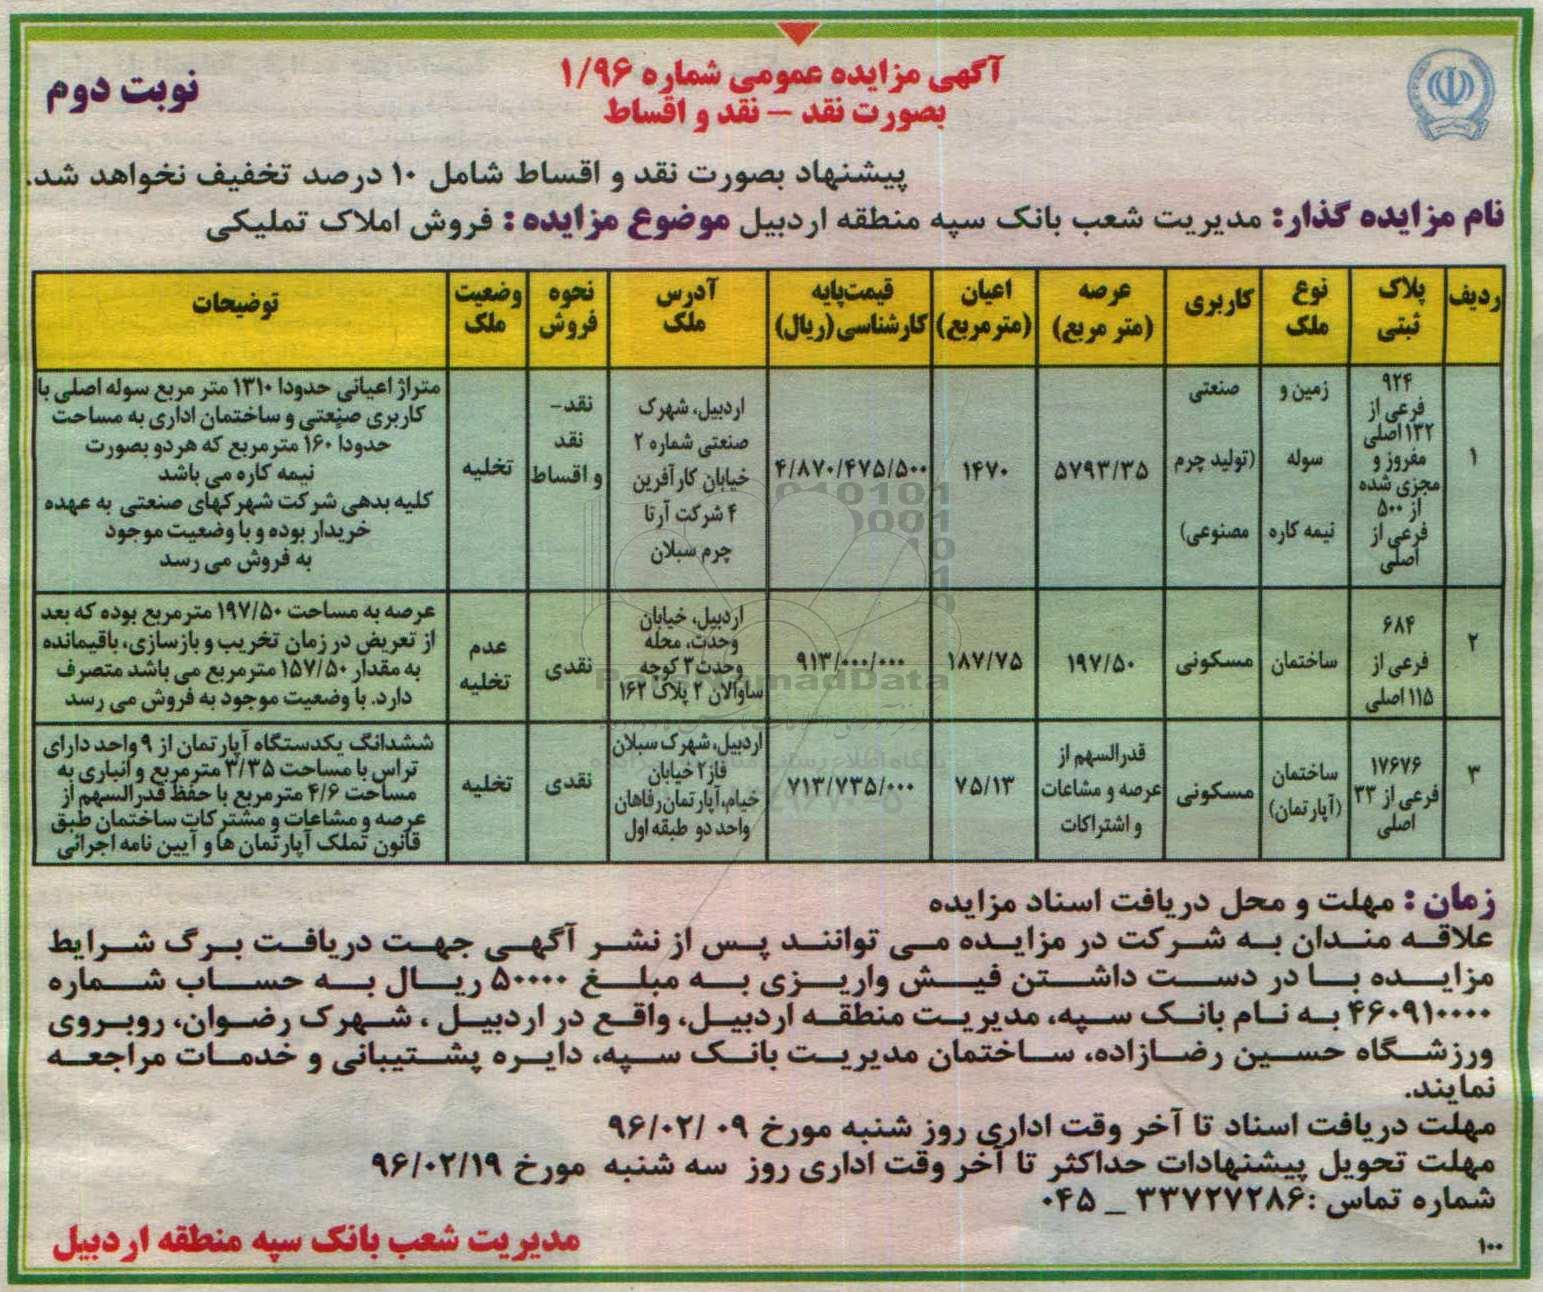 آگهی مزایده عمومی شماره ۱/۹۶
بصورت نقد - نقد و اقساط
نوبت دوم
پیشنهاد بصورت نقد و اقساط شامل ۱۰ درصد تخفیف نخواهد شد.
نام مزایده گذار: مدیریت شعب بانک سپه منطقه اردبیل موضوع مزایده : فروش املاک تملیکی
ردیف
پلاک ثبتی
نوع ملک
کاربری
عرصه (متر مربع)
اعیان (مترمربع)
قیمت‌پایه کارشناسی (ریال)
آدرس ملک
نحوه فروش
وضعیت ملک
توضیحات
۱
۹۲۴
فرعی از
۱۳۲ اصلی
مفروز و
مجزی شده
از ۵۰۰
فرعی از
اصلی
زمین و
سوله
نیمه کاره
صنعتی
(تولید چرم
مصنوعی)
۵۷۹۳/۳۵
۱۴۷۰
۴/۸۷۰/۴۷۵/۵۰۰
اردبیل، شهرک
صنعتی شماره ۲
خیابان کارآفرین
۴ شرکت آرتا
چرم سبلان
نقد-
نقد
و اقساط
تخلیه
متراژ اعیانی حدودا ۱۳۱۰ متر مربع سوله اصلی با
کاربری صنعتی و ساختمان اداری به مساحت
حدودا ۱۶۰ مترمربع که هردو بصورت
نیمه کاره می باشد
کلیه بدهی شرکت شهرکهای صنعتی به عهده
خریدار بوده و با وضعیت موجود
به فروش می رسد
۲
۶۸۴
فرعی از
۱۱۵ اصلی
ساختمان
مسکونی
۱۹۷/۵۰
۱۸۷/۷۵
۹۱۳/۰۰۰/۰۰۰
اردبیل، خیابان
وحدت، محله
وحدت۳ کوچه
ساوالان ۲ پلاک ۱۶۲
نقدی
عدم
تخلیه
عرصه به مساحت ۱۹۷/۵۰ مترمربع بوده که بعد
از تعریض در زمان تخریب و بازسازی، باقیمانده
به مقدار ۱۵۷/۵۰ مترمربع می باشد متصرف
دارد. با وضعیت موجود به فروش می رسد
۳
۱۷۶۷۶
فرعی از ۳۳
اصلی
ساختمان
(آپارتمان)
مسکونی
قدرالسهم از
عرصه و مشاعات
و اشتراکات
۷۵/۱۳
۷۱۳/۷۳۵/۰۰۰
اردبیل، شهرک سبلان
فاز۲ خیابان
خیام، آپارتمان رفاهان
واحد دو طبقه اول
نقدی
تخلیه
ششدانگ یکدستگاه آپارتمان از ۹ واحد دارای
تراس با مساحت ۳/۳۵ مترمربع و انباری به
مساحت ۴/۶ مترمربع با حفظ قدرالسهم از
عرصه و مشاعات و مشترکات ساختمان طبق
قانون تملک آپارتمان ها و آیین نامه اجرائی
زمان : مهلت و محل دریافت اسناد مزایده
علاقه مندان به شرکت در مزایده می توانند پس از نشر آگهی جهت دریافت برگ شرایط
مزایده با در دست داشتن فیش واریزی به مبلغ ۵۰۰۰۰ ریال به حساب شماره
۴۶۰۹۱۰۰۰۰ به نام بانک سپه، مدیریت منطقه اردبیل، واقع در اردبیل ، شهرک رضوان، روبروی
ورزشگاه حسین رضازاده، ساختمان مدیریت بانک سپه، دایره پشتیبانی و خدمات مراجعه
نمایند.
مهلت دریافت اسناد تا آخر وقت اداری روز شنبه مورخ ۹۶/۰۲/۰۹
مهلت تحویل پیشنهادات حداکثر تا آخر وقت اداری روز سه شنبه مورخ ۹۶/۰۲/۱۹
شماره تماس :۳۳۷۲۷۲۸۶ _ ۰۴۵
مدیریت شعب بانک سپه منطقه اردبیل
۱۰۰